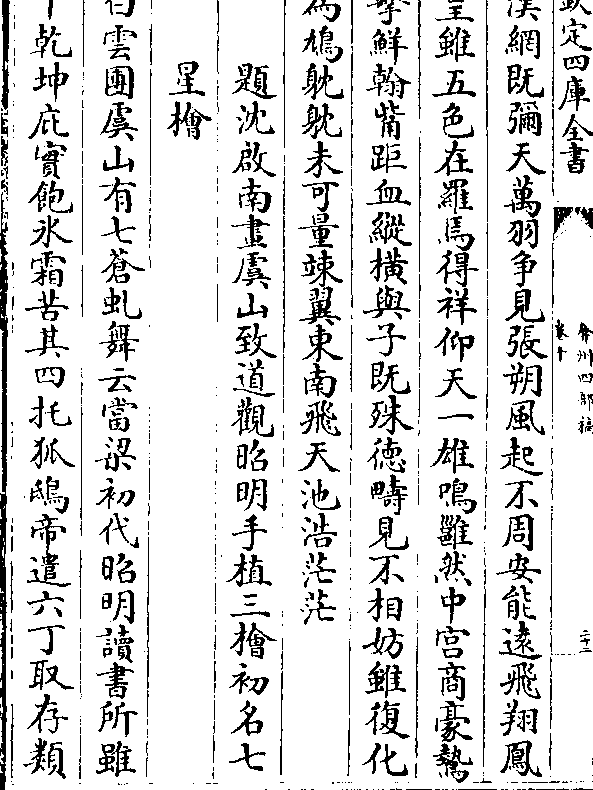 欽定四庫全書
弇州四部稿
卷十
二十二
漢網既彌天萬羽争見張朔風起不周安能遠飛翔鳳
皇雖五色在羅焉得祥仰天一雄鳴雝然中宫商豪鷙
擊鮮翰觜距血縱横與子既殊徳疇見不相妨雖復化
為鳩躭躭未可量竦翼東南飛天池浩茫茫
題沈啟南畫虞山致道觀昭明手植三檜初名七
星檜
白雲團虞山有七蒼虬舞云當梁初代昭明讀書所雖
乾坤庇實飽氷霜苦其四托狐鴟帝遣六丁取存類